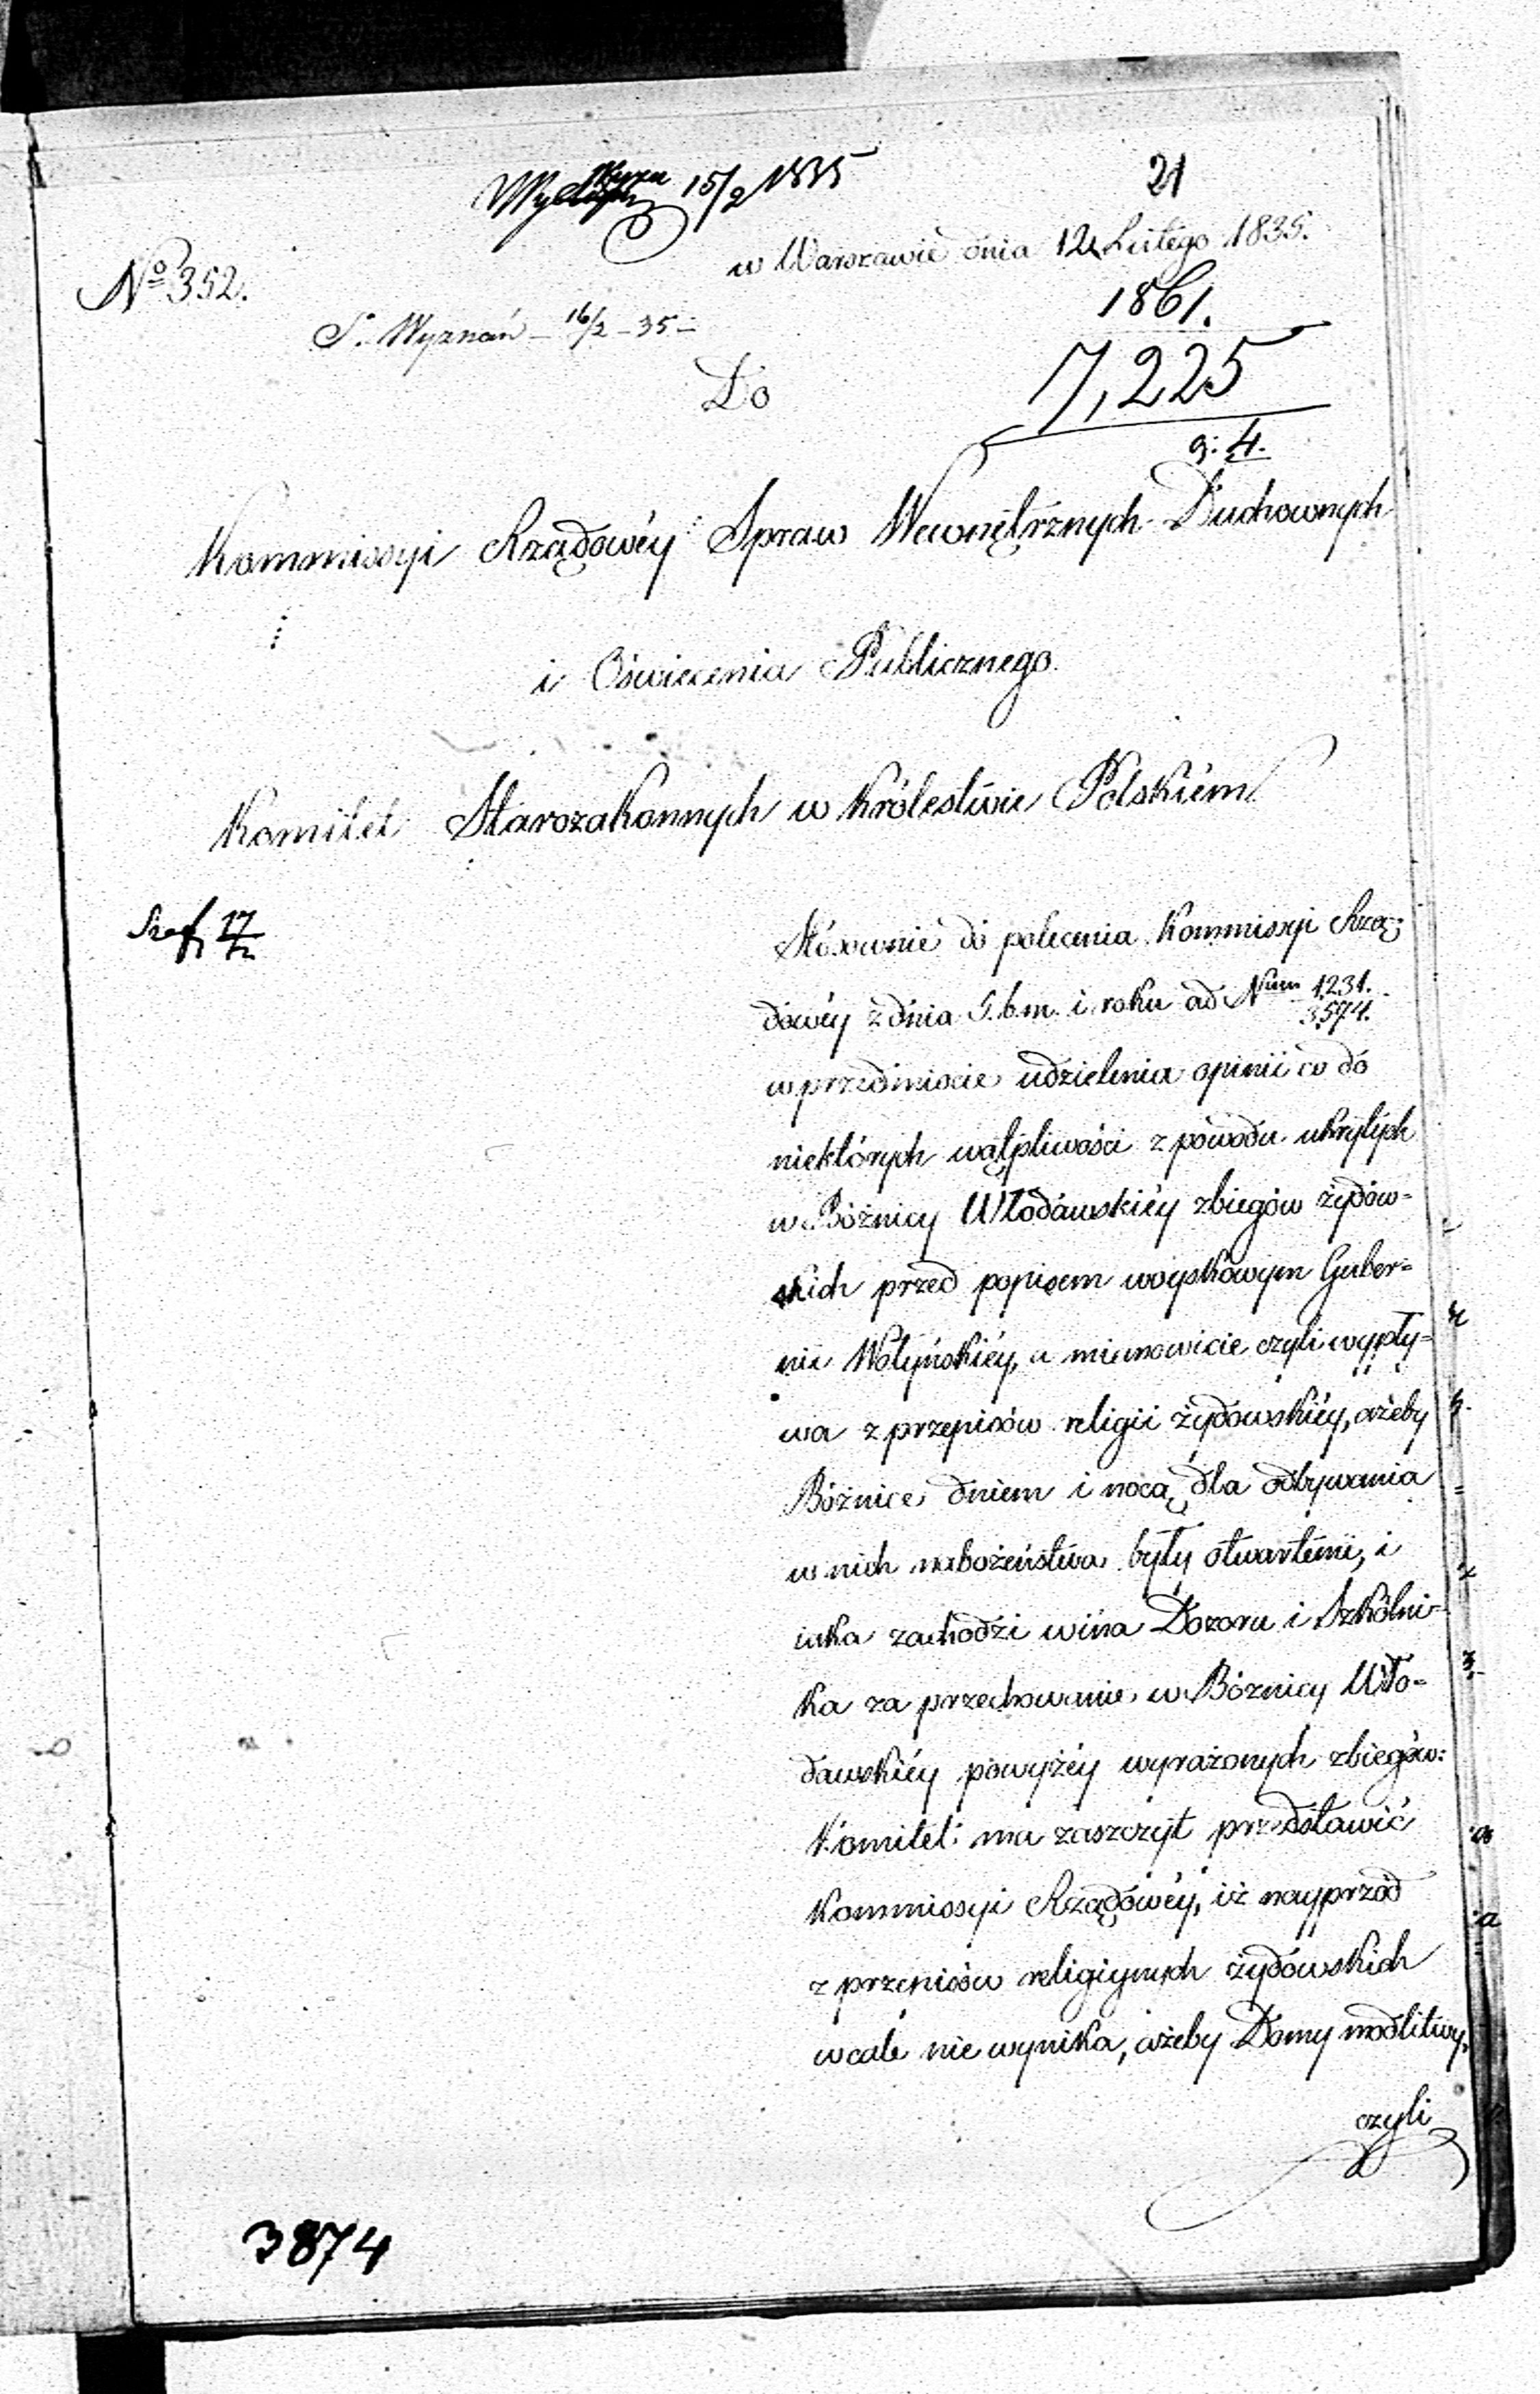 15/2 1835
21
w Warszawie dnia 12 Lutego 1835.
No 352.
1861.
S. Wyznań – 16/2 – 35 –
7,225
Do
g: 4.
Kommissyi Rządowéy Spraw Wewnętrznych Duchownych
i Oświecenia Publicznego
Komitet Starozakonnych w Królestwie Polskiém
17/2
Stósownie do polecenia Kommissyi Rzą-
dowéy z dnia 5. b. m. i roku ad Num 1231.
3574.
w przedmiocie udzielenia opinii co do
niektórych wątpliwości z powodu ukrytych
w Bóżnicy Włodawskiéy zbiegów żydow=
skich przed popisem woyskowym Guber=
nii Wołyńskiéy, a mianowicie czyli wypły=
wa z przepisów religii żydowskiéy, ażeby
Bóżnice dniem i nocą dla odbywania
w nich nabożeństwa były otwartemi, i
iaka zachodzi wina Dozoru i Szkólni=
ka za przechowanie w Bóżnicy Wło=
dawskiéy powyżéy wyrażonych zbiegów:
Komitet ma zaszczyt przedstawić
Kommissyi Rządowéy, iż nayprzód
z przepisów religiynych żydowskich
wcale nie wynika, ażeby Domy modlitwy,
czyli
3874